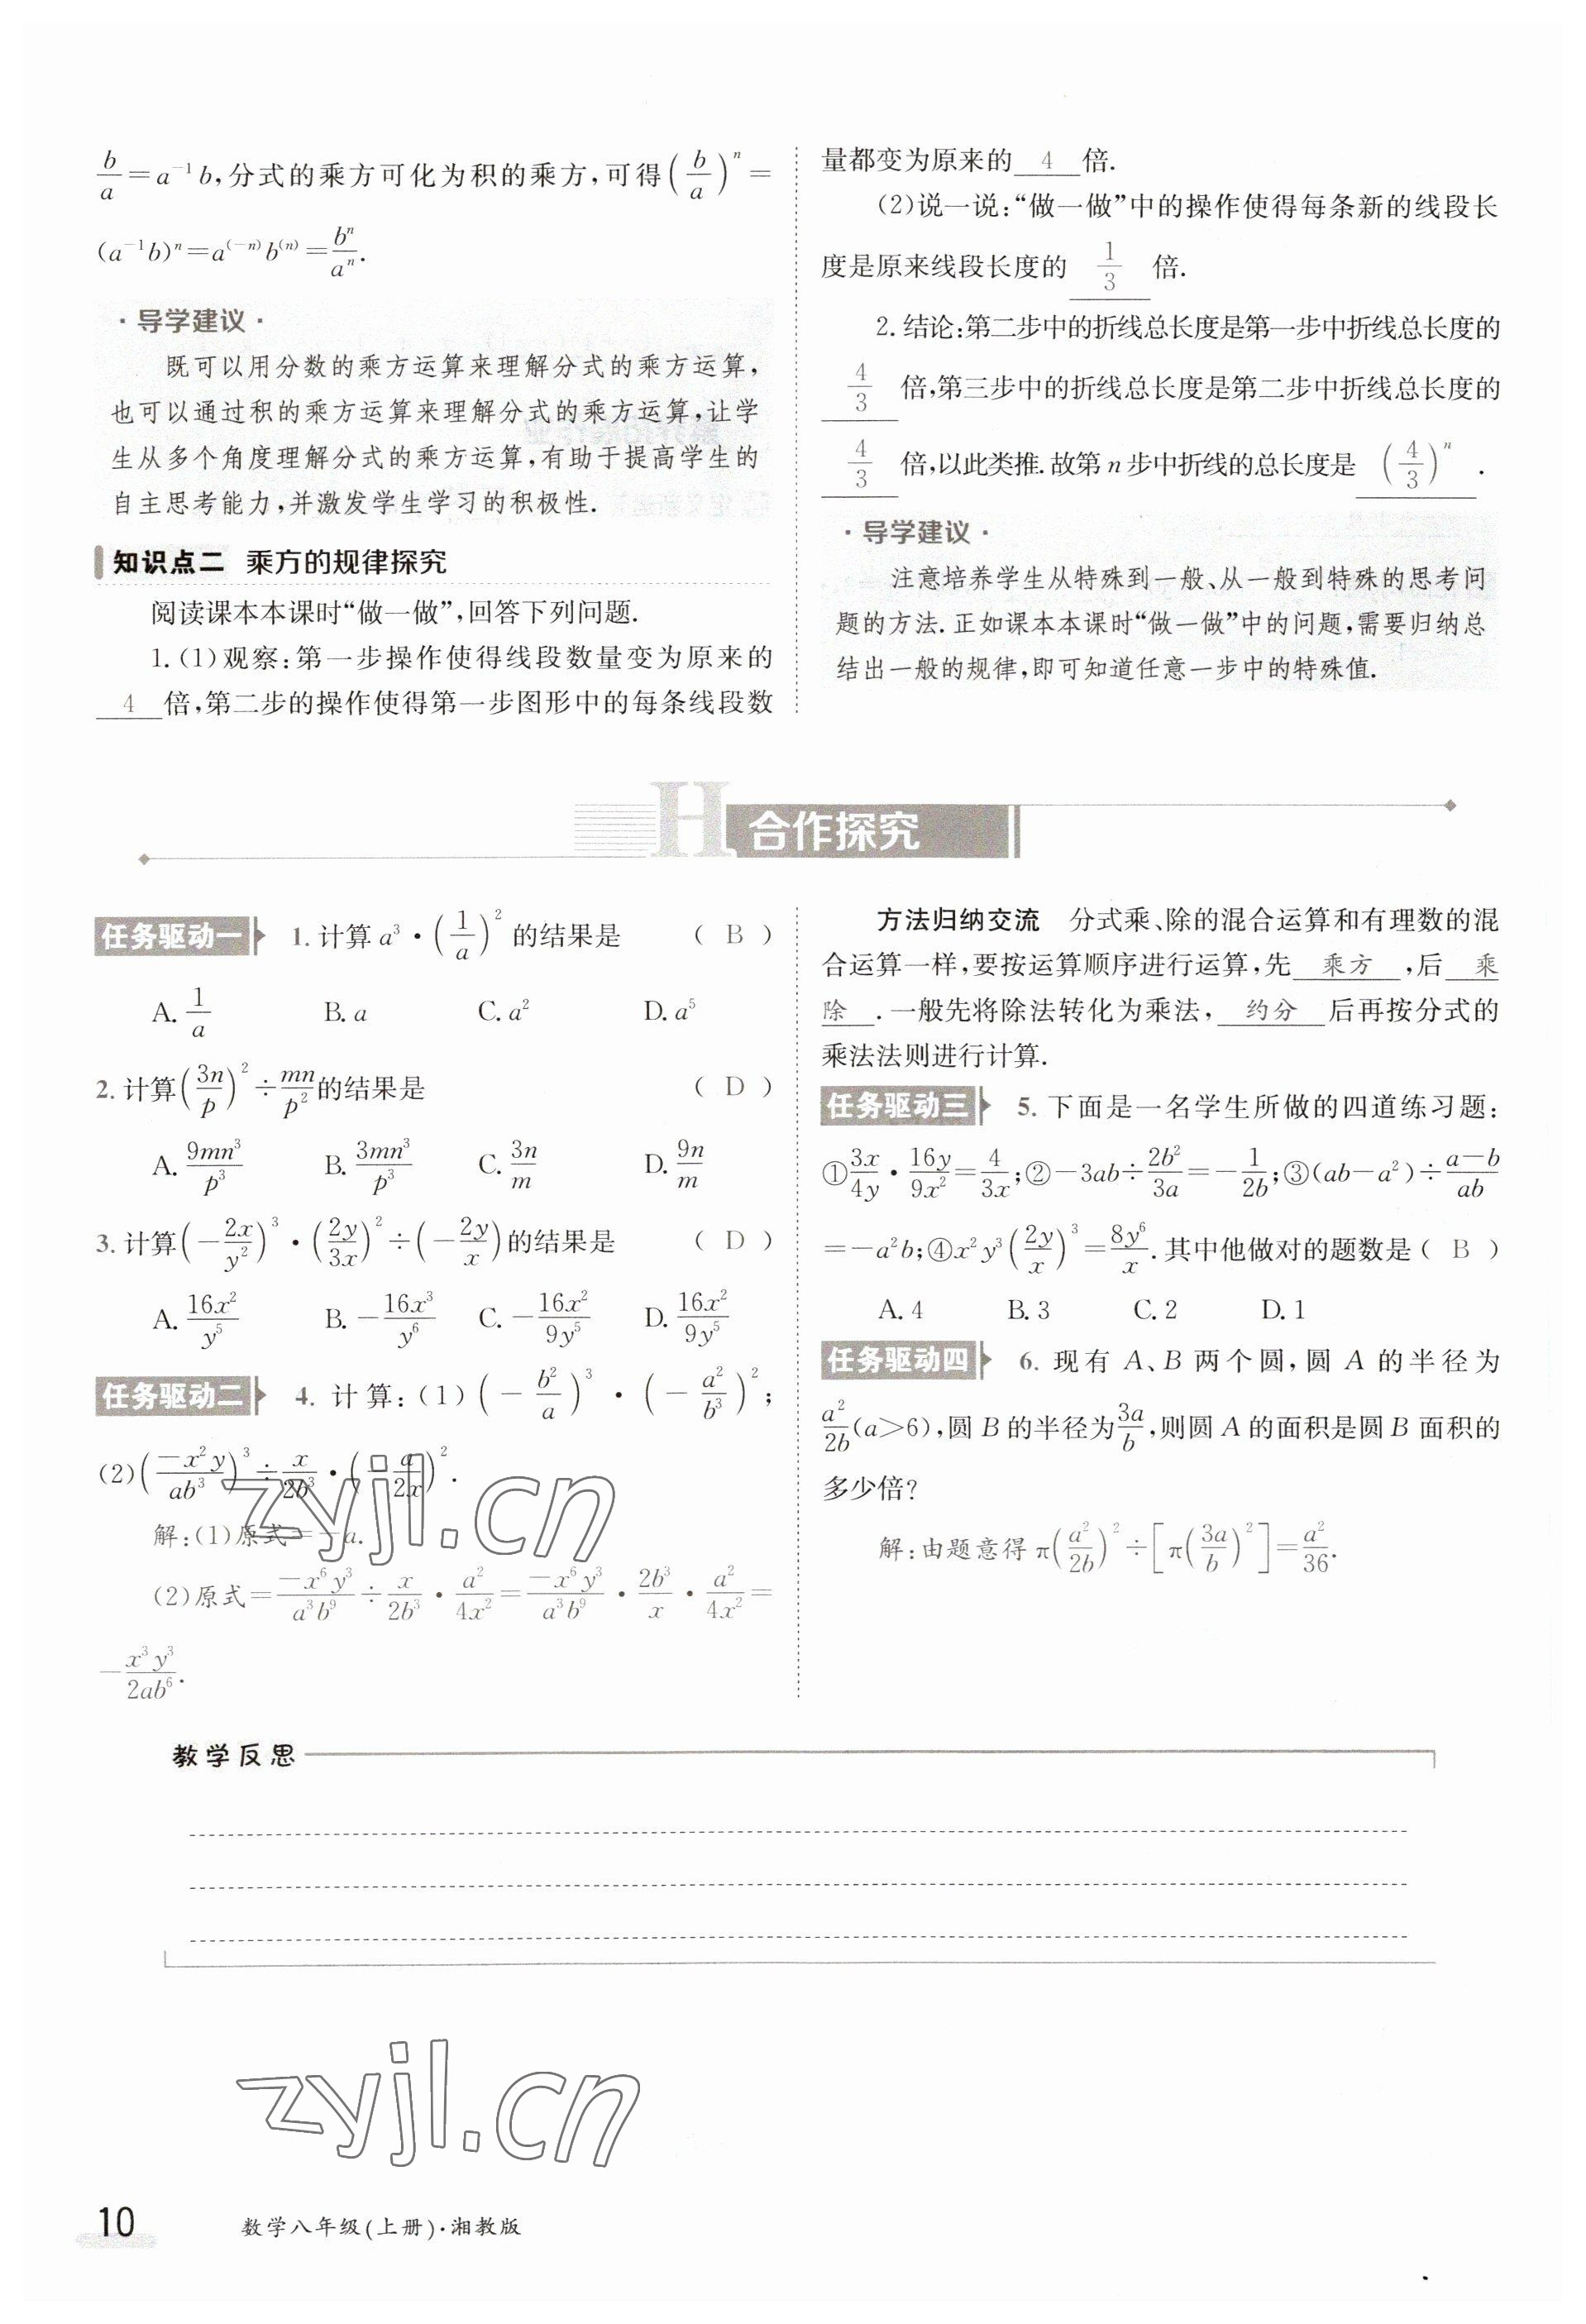 b/a=a⁻¹b,分式的乘方可化为积的乘方,可得(b/a)ⁿ=
(a⁻¹b)ⁿ=a⁽⁻ⁿ⁾b⁽ⁿ⁾=bⁿ/aⁿ.
·导学建议·
既可以用分数的乘方运算来理解分式的乘方运算,
也可以通过积的乘方运算来理解分式的乘方运算,让学
生从多个角度理解分式的乘方运算,有助于提高学生的
自主思考能力,并激发学生学习的积极性.
知识点二 乘方的规律探究
阅读课本本课时“做一做”,回答下列问题.
1.(1)观察:第一步操作使得线段数量变为原来的
4 倍,第二步的操作使得第一步图形中的每条线段数
量都变为原来的 4 倍.
(2)说一说:“做一做”中的操作使得每条新的线段长
度是原来线段长度的 1/3 倍.
2.结论:第二步中的折线总长度是第一步中折线总长度的
4/3 倍,第三步中的折线总长度是第二步中折线总长度的
4/3 倍,以此类推.故第n步中折线的总长度是 (4/3)ⁿ .
·导学建议·
注意培养学生从特殊到一般、从一般到特殊的思考问
题的方法.正如课本本课时“做一做”中的问题,需要归纳总
结出一般的规律,即可知道任意一步中的特殊值.
H 合作探究
任务驱动一 1.计算a³·(1/a)²的结果是 ( B )
A.1/a B.a C.a² D.a⁵
2.计算(3n/p)²÷mn/p²的结果是 ( D )
A.9mn³/p³ B.3mn³/p³ C.3n/m D.9n/m
3.计算(-2x/y²)³·(2y/3x)²÷(-2y/x)的结果是 ( D )
A.16x²/y⁵ B.-16x³/y⁶ C.-16x²/9y⁵ D.16x²/9y⁵
任务驱动二 4.计算:(1)(-b²/a)³·(-a²/b³)²;
(2)(-x²y/ab³)³÷x/2b³·(-a/2x)².
解:(1)原式=-a.
(2)原式=-x⁶y³/a³b⁹÷x/2b³·a²/4x²=-x⁶y³/a³b⁹·2b³/x·a²/4x²=
-x³y³/2ab⁶.
方法归纳交流 分式乘、除的混合运算和有理数的混
合运算一样,要按运算顺序进行运算,先 乘方 ,后 乘
除 .一般先将除法转化为乘法, 约分 后再按分式的
乘法法则进行计算.
任务驱动三 5.下面是一名学生所做的四道练习题:
①3x/4y·16y/9x²=4/3x;②-3ab÷2b²/3a=-1/2b;③(ab-a²)÷a-b/ab
=-a²b;④x²y³(2y/x)³=8y⁶/x.其中他做对的题数是( B )
A.4 B.3 C.2 D.1
任务驱动四 6.现有A、B两个圆,圆A的半径为
a²/2b(a>6),圆B的半径为3a/b,则圆A的面积是圆B面积的
多少倍?
解:由题意得π(a²/2b)²÷[π(3a/b)²]=a²/36.
zyjl.cn
教学反思
zyjl.cn
10 数学八年级(上册)·湘教版